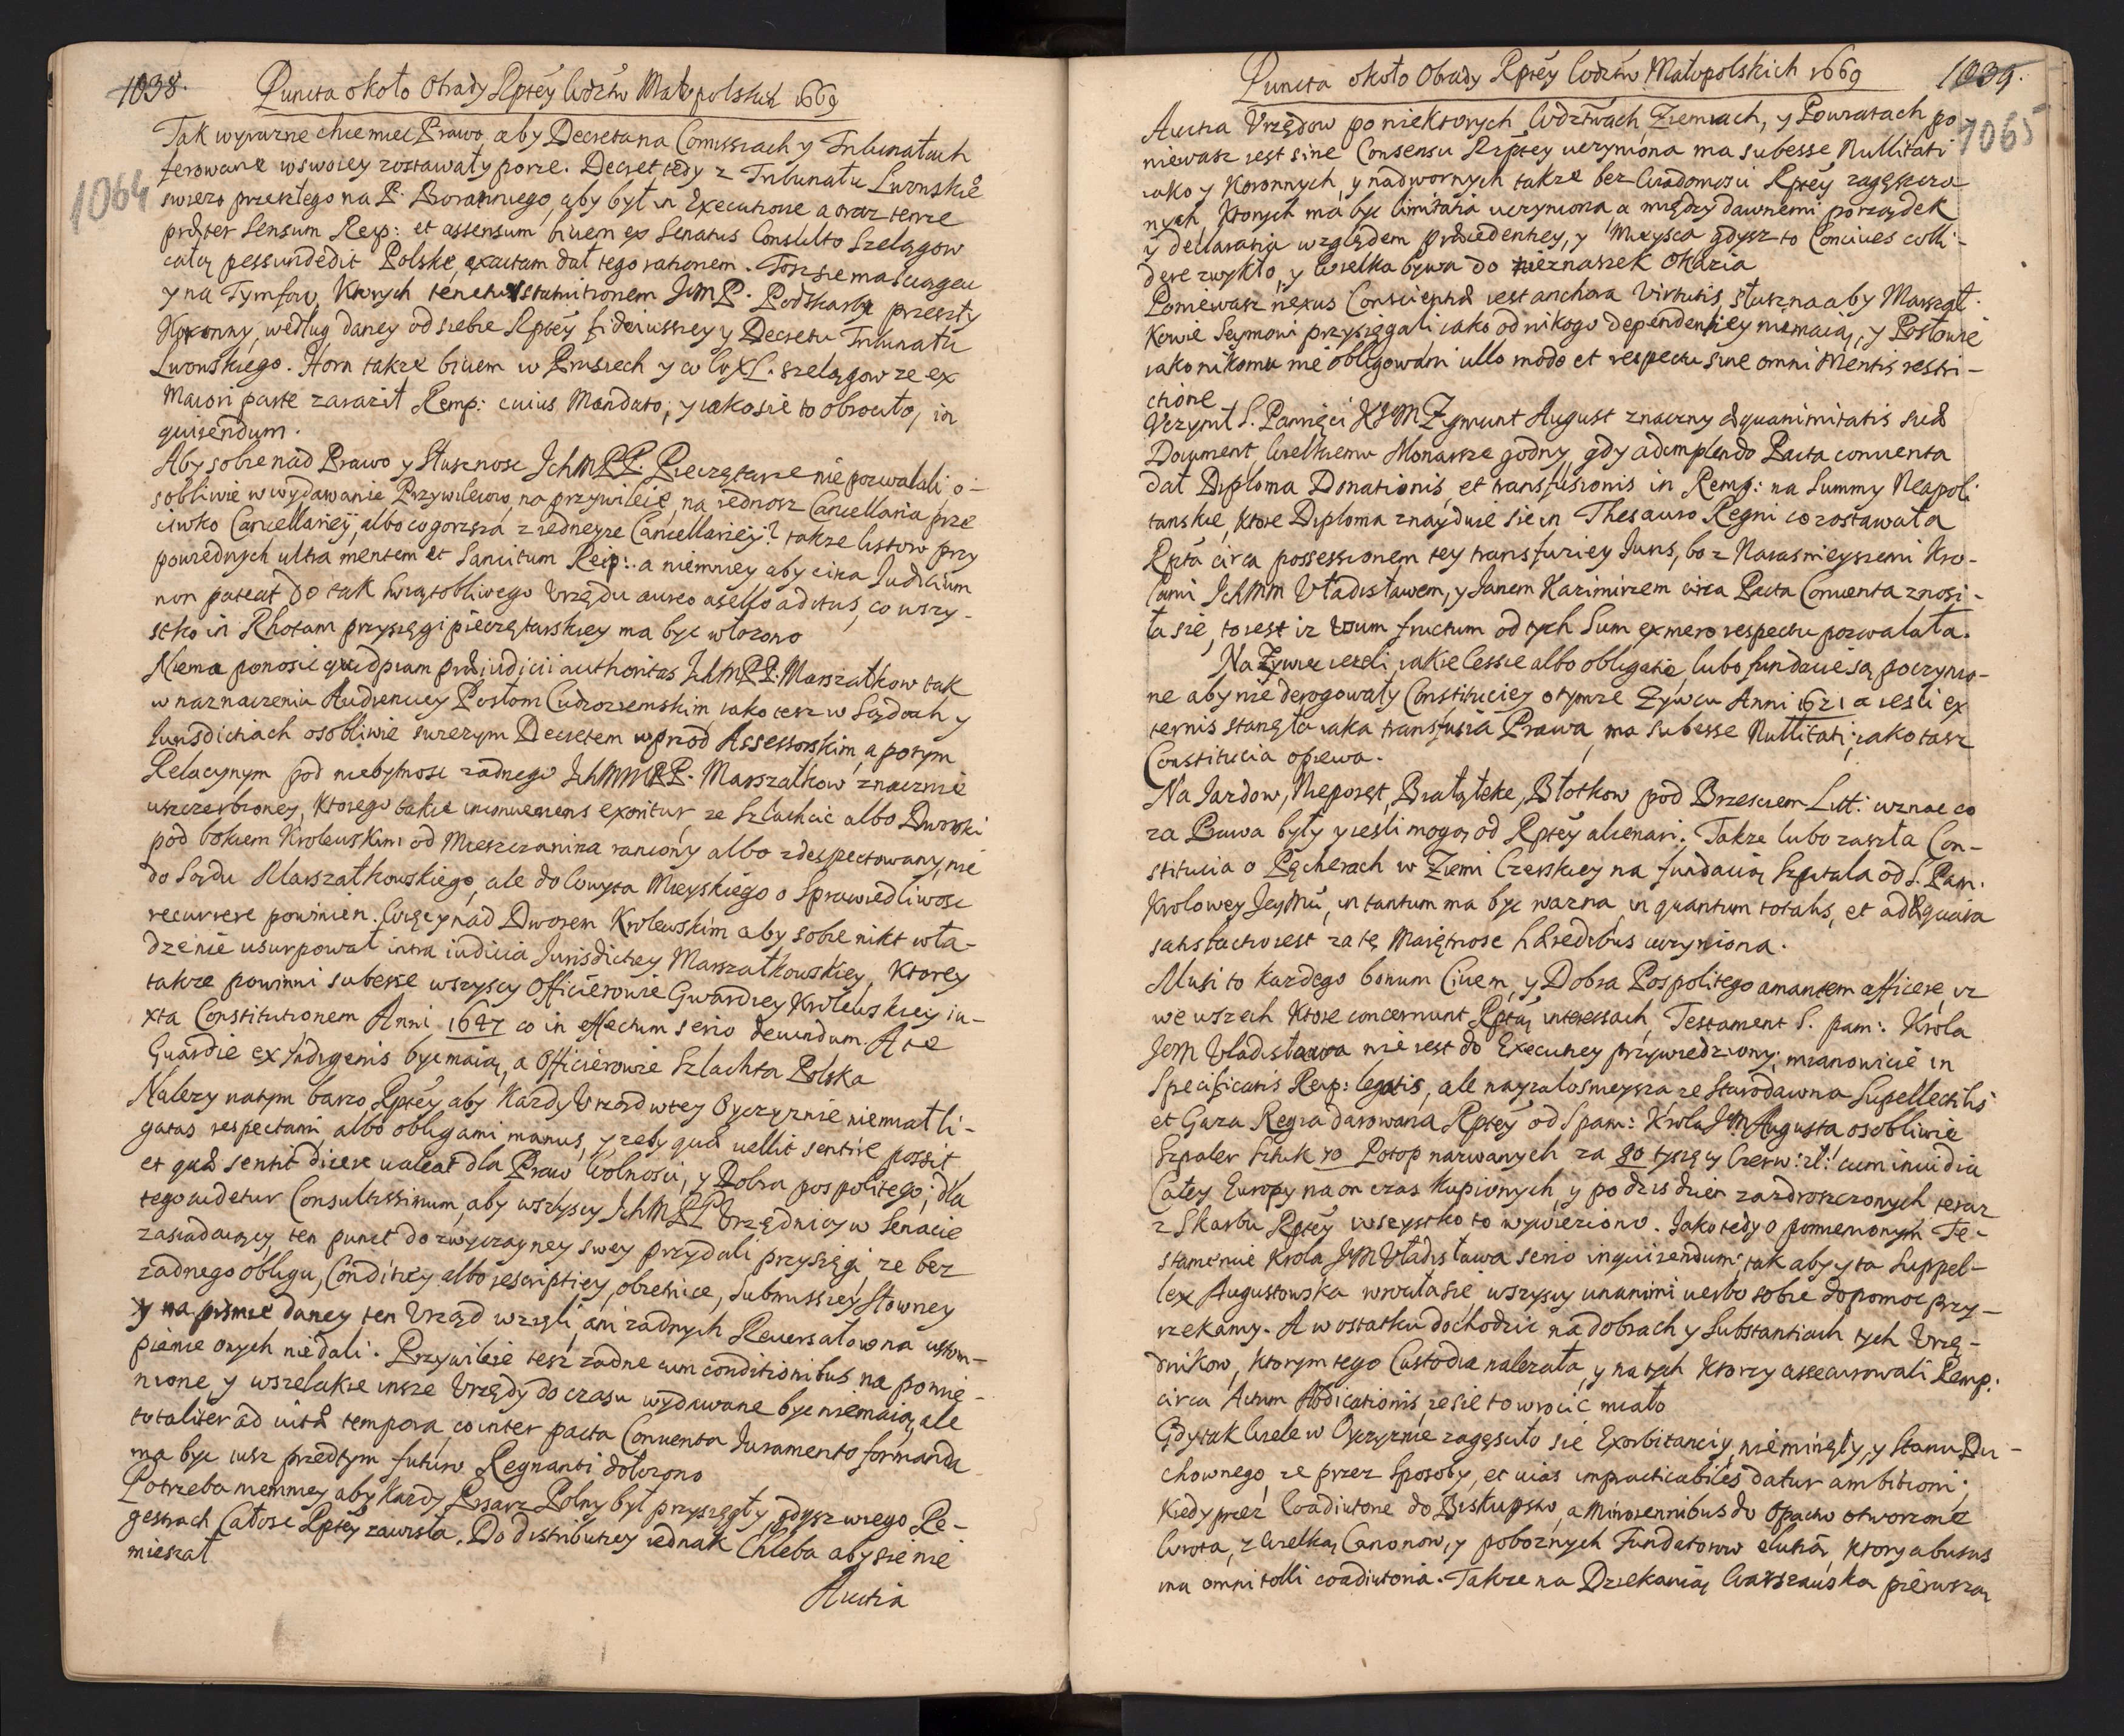 1038.
Puncta około Obrady Rptéy Wdztw Małopolskich 1669
1064
Tak wyrazne chce miec Prawo, aby Decreta na Comissiach y Tribunałach
ferowane w swoiey zostawały porze. Decret tedy z Tribunału Lwowskie
swiezo przeszłego na P. Boratyniego, aby był in Executione a oraz tenze
præter Sensum Reip: et assensum, quem ex Senatus Consulto Szelągow
całą pessundedit Polskę, exactam dał tego rationem. Tosz sie ma sciągac
y na Tymfow, Ktorych tenetur statuitionem JMP. Podskarbi przeszły
Koronny, według daney od siebie Rptéy fideiussiey y Decretu Tribunału
Lwowskiego. Horn takze ciuem w Prusiech y co WXL. szelągow ze ex
Maiori parte zaraził Remp: cuius Mandato; y iako sie to obrociło, in
quirendum.
Aby sobie nad Prawo y Słusznosc JchMPP. Pieczętarze nie pozwalali o-
sobliwie w wydawanie Przywileiow, na przywileie, na iednosz Cancellaria prze
ciwko Cancellariéy, albo co gorsza z iedneyze Cancellariéy? takze listow przy
powiednych ultra mentem et Sancitum Reip: a niemniey aby circa Judicium
non pateat do tak swiątobliwego Urzędu aureo asello aditus, co wszy-
stko in Rhotam przysięgi pieczętarskiey ma byc włozono
Niema ponosic quidpiam præiudicii authoritas JchMPP. Marszałkow tak
w naznaczeniu Audienciey Posłom Cudzoziemskim, iako tesz w Sądach y
Jurisdictiach osobliwie swiezym Decretem wprzod Assessorskim, a potym
Relacyinym pod niebytnosc zadnego JchMMPP. Marszałkow znacznie
uszczerbioney, Ktorego takie inconueniens exoritur, ze Szlachcic albo Dworski
pod bokiem Krolewskim od Mieszczanina raniony albo zdespectowany, nie
do Sądu Marszałkowskiego, ale do Woyta Mieyskiego o Sprawiedliwosc
recurrere powinien. Więc y nad Dworem Krolewskim aby sobie nikt wła-
dze nie usurpował intra iudicia Jurisdictiey Marszałkowskiey, Ktorey
takze powinni subesse wszyscy Officierowie Gwardiey Krolewskiey iu-
xta Constitutionem Anni 1647 co in effectum serio deuendum. A te
Guardie ex Indigenis byc maią, a Officierowie Szlachta Polska
Nalezy na tym barzo Rptéy, aby Kazdy Urząd w tey Oyczyznie niemiał li-
gatas respectami, albo obligami manus, y zeby quæ uellit sentire possit,
et quæ sentit dicere ualeat dla Praw Wolnosci, y Dobra pospolitego; dla
tego uidetur Consultissimum, aby wszyscy JchMPP Urzędnicy w Senacie
zasiadaiący ten punct do zwyczayney swey przydali przysięgi, ze bez
zadnego obligu, Conditiey albo rescriptiey, obietnice, Submissiey Słowney
y na pismie daney ten Urząd wzięli, ani zadnych Reuersałow na ustom-
pienie onych nie dali. Przywileie tesz zadne cum conditionibus na pomie-
nione, y wszelakie insze Urzędy do czasu wydawane byc niemaią, ale
totaliter ad uitæ tempora, co inter pacta Conuenta Juramento formanda
ma byc iusz przedtym futuro Regnanti dołozono
Potrzeba niemniey aby Kazdy Pisarz Polny był przysięgły, gdysz w iego Re-
gestrach Całosc Rptéy zawisła. Do distributiey iednak Chleba aby sie nie
mieszał
Auctia
Puncta około Obrady Rptéy Wdztw Małopolskich 1669
1039.
1065
Auctia Urzędow po niektorych Wdztwach, Ziemiach, y Powiatach po-
niewasz iest sine Consensu Rzptey uczyniona ma subesse Nullitati
iako y Koronnych, y nadwornych takze bez Wiadomosci Rptéy zagęszczo
nych, Ktorych ma byc limitatia uczyniona, a między dawnemi porządek
y declaratia względem præcedentiey, y Mieysca gdysz to Conciues colli-
dere zwykło, y Wielka bywa do niezniaszek Okazia
Poniewasz nexus Conscientiæ iest anchora Virtutis, słuszna aby Marszał-
Kowie Seymowi przysięgali iako od nikogo dependentiey niemaią, y Posłowie
iako nikomu nie obligowani ullo modo et respectu sine omni Mentis restri-
ctione
Uczynił S. Pamięci KJM. Zygmunt August znaczny æquanimitatis suæ
Document, Wielkiemu Monarsze godny, gdy adimplendo Pacta conuenta
dał Diploma Donationis, et transfusionis in Remp: na Summy Neapoli
tanskie, Ktore Diploma znayduie sie in Thesauro Regni co zostawała
Rpta circa possessionem tey transfuziey Juris, bo z Naiasnieyszemi Kro-
lami JchMM Władisławem, y Janem Kazimirzem circa Pacta Conuenta znosi-
ła sie, to iest iz Usum fructum od tych Sum ex mero respectu pozwalała.
Na Zywiec iezeli iakie Cessie albo obligatie, lubo fundacie są poczynio-
ne aby nie derogowały Constituciey o tymze Zywcu Anni 1621 a iesli ex
ternis stanęła iaka transfusia Prawa, ma subesse Nullitati, iako tasz
Constitucia opiewa.
Na Jazdow, Nieporęt, Białąłekę, Błotkow pod Brzesciem Litt: uznac co
za Prawa były y iesli mogą od Rptéy alienari. Takze lubo zaszła Con-
stitucia o Pęcherach w Ziemi Czerskiey na fundacią Szpitala od S. Pam.
Krolowey JeyMci, in tantum ma byc wazna, in quantum totalis, et adæquata
satisfactio iest za tę Maiętnosc hæredibus uczyniona.
Musi to kazdego bonum Ciuem, y Dobra Pospolitego amantem afficere, iz
we wszech Ktore concernunt Rptą interessach, Testament S. pam: Krola
JM Władisława nie iest do Executiey przywiedziony, mianowicie in
Specificatis Reip: legatis, ale nayzałosnieysza ze Starodawna Supellectilis
et Gaza Regia darowana Rptéy od S pam: Krola JM Augusta osobliwie
Szpaler Sztuk 70 Potop nazwanych za 80 tysięcy Czerw: zł: cum inuidia
Całey Europy na on czas Kupionych, y po dzis dzien zazdroszczonych teraz
z Skarbu Rptéy wszystko to wywieziono. Jako tedy o pomienionym Te-
stamencie Krola JM Władisława serio inquirendum, tak aby y ta Suppel-
lex Augustowska wrociła sie, wszyscy unanimi uerbo sobie dopomoc przy-
rzekamy. A w ostatku dochodzic na dobrach y Substantiach tych Urzę-
dnikow, ktorym tego Custodia nalezała, y na tych Ktorzy assecurowali Remp:
circa Actum Abdicationis, ze sie to wrocic miało
Gdy tak Wiele w Oyczyznie zagęsciło sie Exorbitanciy, nie minęły, y Stanu Du-
chownego, ze przez sposoby, et uias impracticabiles datur ambitioni;
Kiedy przez Coadiutorie do Biskupstw, a Minorennibus do Opactw otworzone
Wrota, z Wielką Canonow, y poboznych Fundatorow elusią, Ktory abusus
ma omni tolli coadiutoria. Takze na Dziekanią Warszawska pierwszą